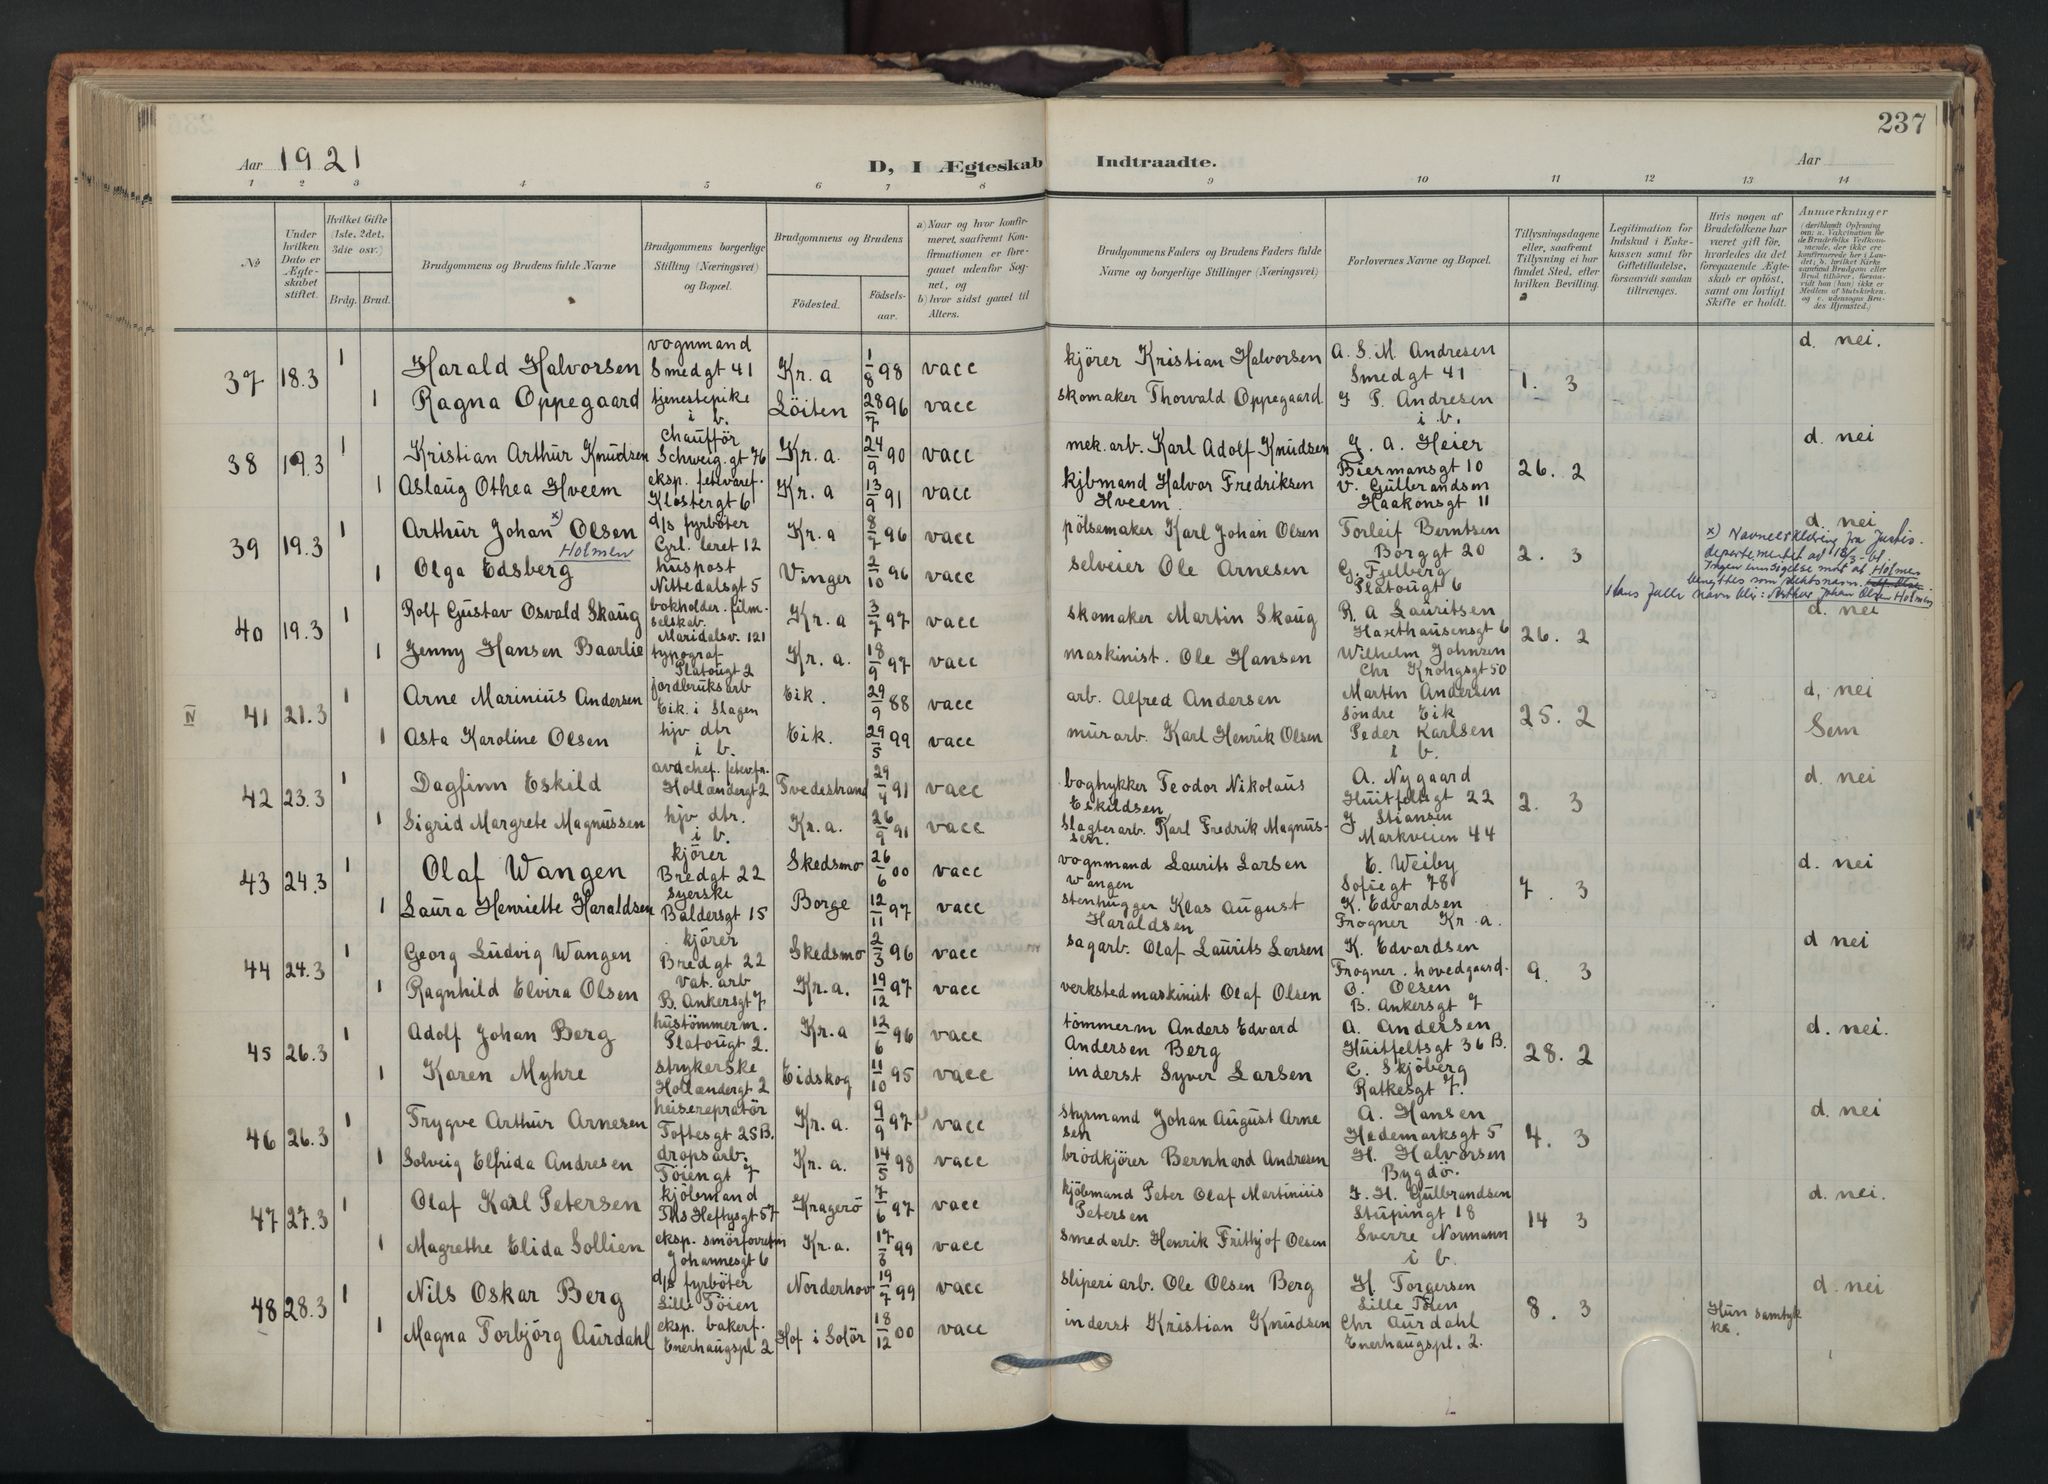 237
Aar 1921 D, I Ægteskab Indtraadte. Aar
1 2 3 4 5 6 7 8 9 10 11 12 13 14
No
Under hvilken Dato er Ægteskabet stiftet.
Hvilket Gifte (1ste, 2det, 3die osv.)
Brdg. Brud.
Brudgommens og Brudens fulde Navne
Brudgommens borgerlige Stilling (Næringsvei) og Bopæl.
Brudgommens og Brudens
Födested. Födselsaar.
a) Naar og hvor konfirmeret, saafremt Konfirmationen er foregaaet udenfor Sognet, og
b) hvor sidst gaaet til Alters.
Brudgommens Faders og Brudens Faders fulde Navne og borgerlige Stillinger (Næringsvei)
Forlovernes Navne og Bopæl.
Tillysningsdagene eller, saafremt Tillysning ei har fundet Sted, efter hvilken Bevilling.
Legitimation for Indskud i Enkekassen samt for Giftetilladelse, forsaavidt saadan tiltrænges.
Hvis nogen af Brudefolkene har været gift för, hvorledes da det foregaaende Ægteskab er oplöst, samt om lovligt Skifte er holdt.
Anmærkninger
(deriblandt Oplysning om: a. Vakcination for de Brudefolks Vedkommende, der ikke ere konfirmerede her i Landet; b. hvilket Kirkesamfund Brudgom eller Brud tilhörer, forsaavidt han (hun) ikke er Medlem af Statskirken, og c. udensogns Brudes Hjemsted.)
37 18.3 1 Harald Halvorsen vognmand Smedgt 41 Kr. a 1/8 98 vacc kjörer Kristian Halvorsen A. S. M. Andresen Smedgt 41 1. 3 d. nei.
1 Ragna Oppegaard tjenestepike i b. Löiten 28/7 96 vacc skomaker Thorvald Oppegaard J P. Andresen i b.
38 19.3 1 Kristian Arthur Knudsen Chaufför Schweig.gt 76 Kr. a. 24/9 90 vacc mek. arb. Karl Adolf Knudsen G. A. Heier Biermansgt 10 26. 2 d. nei
1 Aslaug Othea Hveem eksp. fetevaref. Klostergt 6 Kr. a 13/9 91 vacc kjbmand Halvor Fredriksen Hveem. V. Gulbrandsen Haakonsgt 11
39 19.3 1 Arthur Johan x) Olsen Holmen d/s fyrböter Grl. leret 12 Kr. a 8/7 96 vacc pölsemaker Karl Johan Olsen Torleif Berntsen Borggt 20 2. 3 d. nei
1 Olga Edsberg huspost Nittedalsgt 5 Vinger 2/10 96 vacc selveier Ole Arnesen G. Fjelberg Platougt 6
x) Navneerklæring fra Justisdepartementet av 18/3-
Ingen innsigelse mot at Holmen
benyttes som slektsnavn.
Hans fulle navn blir: Arthur Johan Olsen Holmen
40 19.3 1 Rolf Gustav Osvald Skaug bokholder. filmselskab. Maridalsv. 121 Kr. a 3/7 97 vacc skomaker Martin Skaug R. A Lauritsen Haxthausensgt 6 26. 2 d. nei
1 Jenny Hansen Baarlie typograf Platougt 2 Kr. a. 18/9 97 vacc maskinist. Ole Hansen Wilhelm Johnsen Chr Krohgsgt 50
IV 41 21.3 1 Arne Marinius Andersen jordbruksarb Eik. i Slagen Eik. 29/9 88 vacc arb. Alfred Andersen Martin Andersen Söndre Eik 25. 2 d, nei
1 Asta Karoline Olsen hjv dtr i b. Eik. 29/5 99 vacc mur arb. Karl Henrik Olsen Peder Karlsen i b. Sem
42 23.3 1 Dagfinn Eskild avd chef. fetevfn. Hollændergt 2 Tvedestrand 29/4 91 vacc bogtrykker Teodor Nikolaus Eskildsen A. Nygaard Huitfeltsgt 22 2. 3 d. nei
1 Sigrid Margrete Magnussen hjv dtr. i b. Kr. a. 26/9 91 vacc Slagterarb. Karl Fredrik Magnussen. J Stiansen Markveien 44
43 24.3 1 Olaf Wangen kjörer Bredgt 22 Skedsmo 26/6 00 vacc vognmand Laurits Larsen Wangen E. Weiby Sofiegt 78 7. 3 d. nei
1 Laura Henriette Haraldsen syerske Baldersgt 15 Borge 12/11 97 vacc stenhugger Klas August Haraldsen K. Edvardsen Frogner Kr. a.
44 24.3 1 Georg Ludvig Wangen kjörer Bredgt 22 Skedsmo 2/3 96 vacc sagarb. Olaf Laurits Larsen K. Edvardsen Frogner. hovedgaard. 9. 3 d nei
1 Ragnhild Elvira Olsen Vat. arb B. Ankersgt 7 Kr. a. 19/12 97 vacc verkstedmaskinist Olaf Olsen O. Olsen B. Ankersgt 7
45 26.3 1 Adolf Johan Berg hustömmerm. Platougt 2. Kr. a 12/6 96 vacc tömmerm Anders Edvard Andersen Berg A. Andersen Huitfeltsgt 36 B. 28. 2 d. nei.
1 Karen Myhre strykerske Hollændergt 2 Eidskog 11/10 95 vacc inderst Syver Larsen C. Skjöberg Ratkesgt 7.
46 26.3 1 Trygve Arthur Arnesen heisrepratör Toftesgt 25B. Kr. a. 9/9 97 vacc styrmand Johan August Arnesen A. Hansen Hedemarksgt 5 4. 3 d. nei
1 Solveig Elfrida Andresen dropsarb. Töiengt 7 Kr. a. 14/5 98 vacc brödkjörer Bernhard Andresen H. Halvorsen Bygdö.
47 27.3 1 Olaf Karl Petersen kjöbmand Ths Heftysgt 57 Kragerö 7/6 97 vacc kjöbmand Peter Olaf Martinius Petersen J. H. Gulbrandsen Stupingt 18 14 3 d. nei.
1 Magrethe Elida Sollien eksp. smörforretn Johannesgt 6 Kr. a. 17/3 99 vacc smedarb. Henrik Frithjof Olsen Sverre Normann i b.
48 28.3 1 Nils Oskar Berg d/s fyrböter Lille Töien Norderhov 19/7 99 vacc sliperi arb. Ole Olsen Berg H. Torgersen Lille Töien 8. 3 d. nei
1 Magna Torbjörg Aurdahl eksp. bakerf. Enerhaugspl 2 Hof i Solör 18/12 00 vacc inderst Kristian Knudsen Chr Aurdahl Enerhaugspl. 2. Hun samtykke.